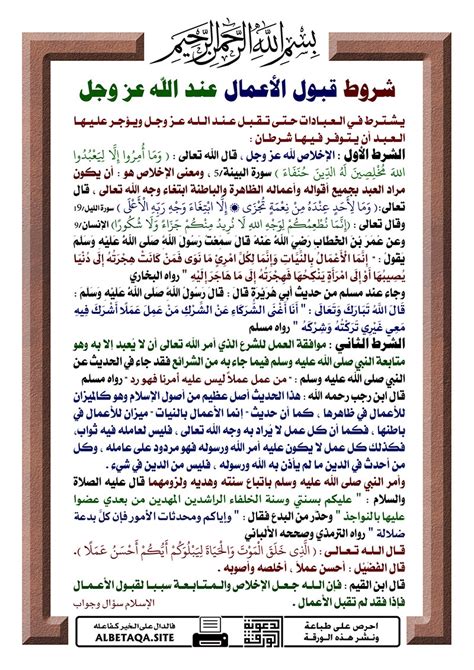 بسم الله الرحمن الرحيم
شروط قبول الأعمال عند الله عز وجل
يشترط في العبادات حتى تقبل عند الله عز وجل ويؤجر عليها
العبد أن يتوفر فيها شرطان :
الشرط الأول : الإخلاص لله عز وجل ، قال الله تعالى : ( وَمَا أُمِرُوا إِلَّا لِيَعْبُدُوا
اللهَ مُخْلِصِينَ لَهُ الدِّينَ حُنَفَاءَ ) سورة البينة/5 ، ومعنى الإخلاص هو : أن يكون
مراد العبد بجميع أقواله وأعماله الظاهرة والباطنة ابتغاء وجه الله تعالى ، قال
تعالى:( وَمَا لِأَحَدٍ عِنْدَهُ مِنْ نِعْمَةٍ تُجْزَى ۞ إِلَّا ابْتِغَاءَ وَجْهِ رَبِّهِ الْأَعْلَى ) سورة الليل/19
وقال تعالى : (إِنَّمَا نُطْعِمُكُمْ لِوَجْهِ اللَّهِ لَا نُرِيدُ مِنْكُمْ جَزَاءً وَلَا شُكُورًا) الإنسان/9
وعن عمر بن الخطاب رضي الله عنه قال سمعت رسول الله صلى الله عليه وسلم
يقول : - إنما الأعمال بالنيات وإنما لكل امرئ ما نوى فمن كانت هجرته إلى دنيا
يصيبها أو إلى امرأة ينكحها فهجرته إلى ما هاجر إليه " رواه البخاري
وجاء عند مسلم من حديث أبي هريرة قال : قال رسول الله صلى الله عليه وسلم :
قال الله تبارك وتعالى : " أنا أغنى الشركاء عن الشرك من عمل عملا أشرك فيه
معي غيري تركته وشركه " رواه مسلم
الشرط الثاني : موافقة العمل للشرع الذي أمر الله تعالى أن لا يعبد إلا به وهو
متابعة النبي صلى الله عليه وسلم فيما جاء به من الشرائع فقد جاء في الحديث عن
النبي صلى الله عليه وسلم : - من عمل عملاً ليس عليه أمرنا فهو رد - رواه مسلم
قال ابن رجب رحمه الله : هذا الحديث أصل عظيم من أصول الإسلام وهو كالميزان
للأعمال في ظاهرها ، كما أن حديث - إنما الأعمال بالنيات - ميزان للأعمال في
باطنها ، فكما أن كل عمل لا يراد به وجه الله تعالى ، فليس لعامله فيه ثواب،
فكذلك كل عمل لا يكون عليه أمر الله ورسوله فهو مردود على عامله ، وكل
من أحدث في الدين ما لم يأذن به الله ورسوله ، فليس من الدين في شيء .
وأمر النبي صلى الله عليه وسلم باتباع سنته وهديه ولزومهما قال عليه الصلاة
والسلام : " عليكم بسنتي وسنة الخلفاء الراشدين المهدين من بعدي عضوا
عليها بالنواجذ " وحذر من البدع فقال : " وإياكم ومحدثات الأمور فإن كل بدعة
ضلالة " رواه الترمذي وصححه الألباني
قال الله تعالى : ( الَّذِي خَلَقَ الْمَوْتَ وَالْحَيَاةَ لِيَبْلُوَكُمْ أَيُّكُمْ أَحْسَنُ عَمَلًا ).
قال الفضيل : أحسن عملاً ، أخلصه وأصوبه .
قال ابن القيم : فإن الله جعل الإخلاص والمتابعة سببا لقبول الأعمال
فإذا فقد لم تقبل الأعمال .
الإسلام سؤال وجواب
احرص على طباعة
ونشر هذه الورقة
الدعوية
فالدال على الخير كفاعله
ALBETAQA.SITE